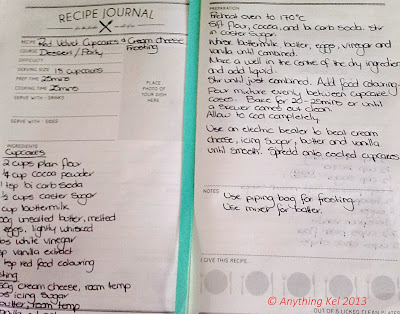 RECIPE JOURNAL
RECIPE Red Velvet Cupcakes & Cream cheese
Frosting
COURSE Dessert / Party
DIFFICULTY
SERVING SIZE 18 cupcakes
PREP TIME 25mins
COOKING TIME 25mins
SERVE WITH - DRINKS
PLACE
PHOTO
OF YOUR
DISH
HERE
SERVE WITH - SIDES
INGREDIENTS
Cupcakes
2 cups plain flour
1/4 cup cocoa powder
1 tsp bi carb soda
1/2 cups caster sugar
cup buttermilk
unsalted butter, melted
eggs, lightly whisked
white vinegar
vanilla extract
tsp red food colouring
sting
cream cheese, room temp
icing sugar
butter, room temp
PREPARATION
Preheat oven to 170°C
Sift flour, cocoa, and bi carb soda. Stir
in caster sugar.
Whisk buttermilk, butter, eggs, vinegar and
vanilla until combined.
Make a well in the centre of the dry ingredients
and add liquid.
Stir until just combined. Add food colouring.
Pour mixture evenly between cupcake
cases. Bake for 20-25mins or until
a skewer comes out clean.
Allow to cool completely.
Use an electric beater to beat cream
cheese, icing sugar, butter and vanilla
until smooth. Spread onto cooled cupcakes.
NOTES
Use piping bag for frosting.
Use mixer for batter.
GIVE THIS RECIPE..
OUT OF 5 LICKED CLEAN PLATES
© Anything Kel 2013